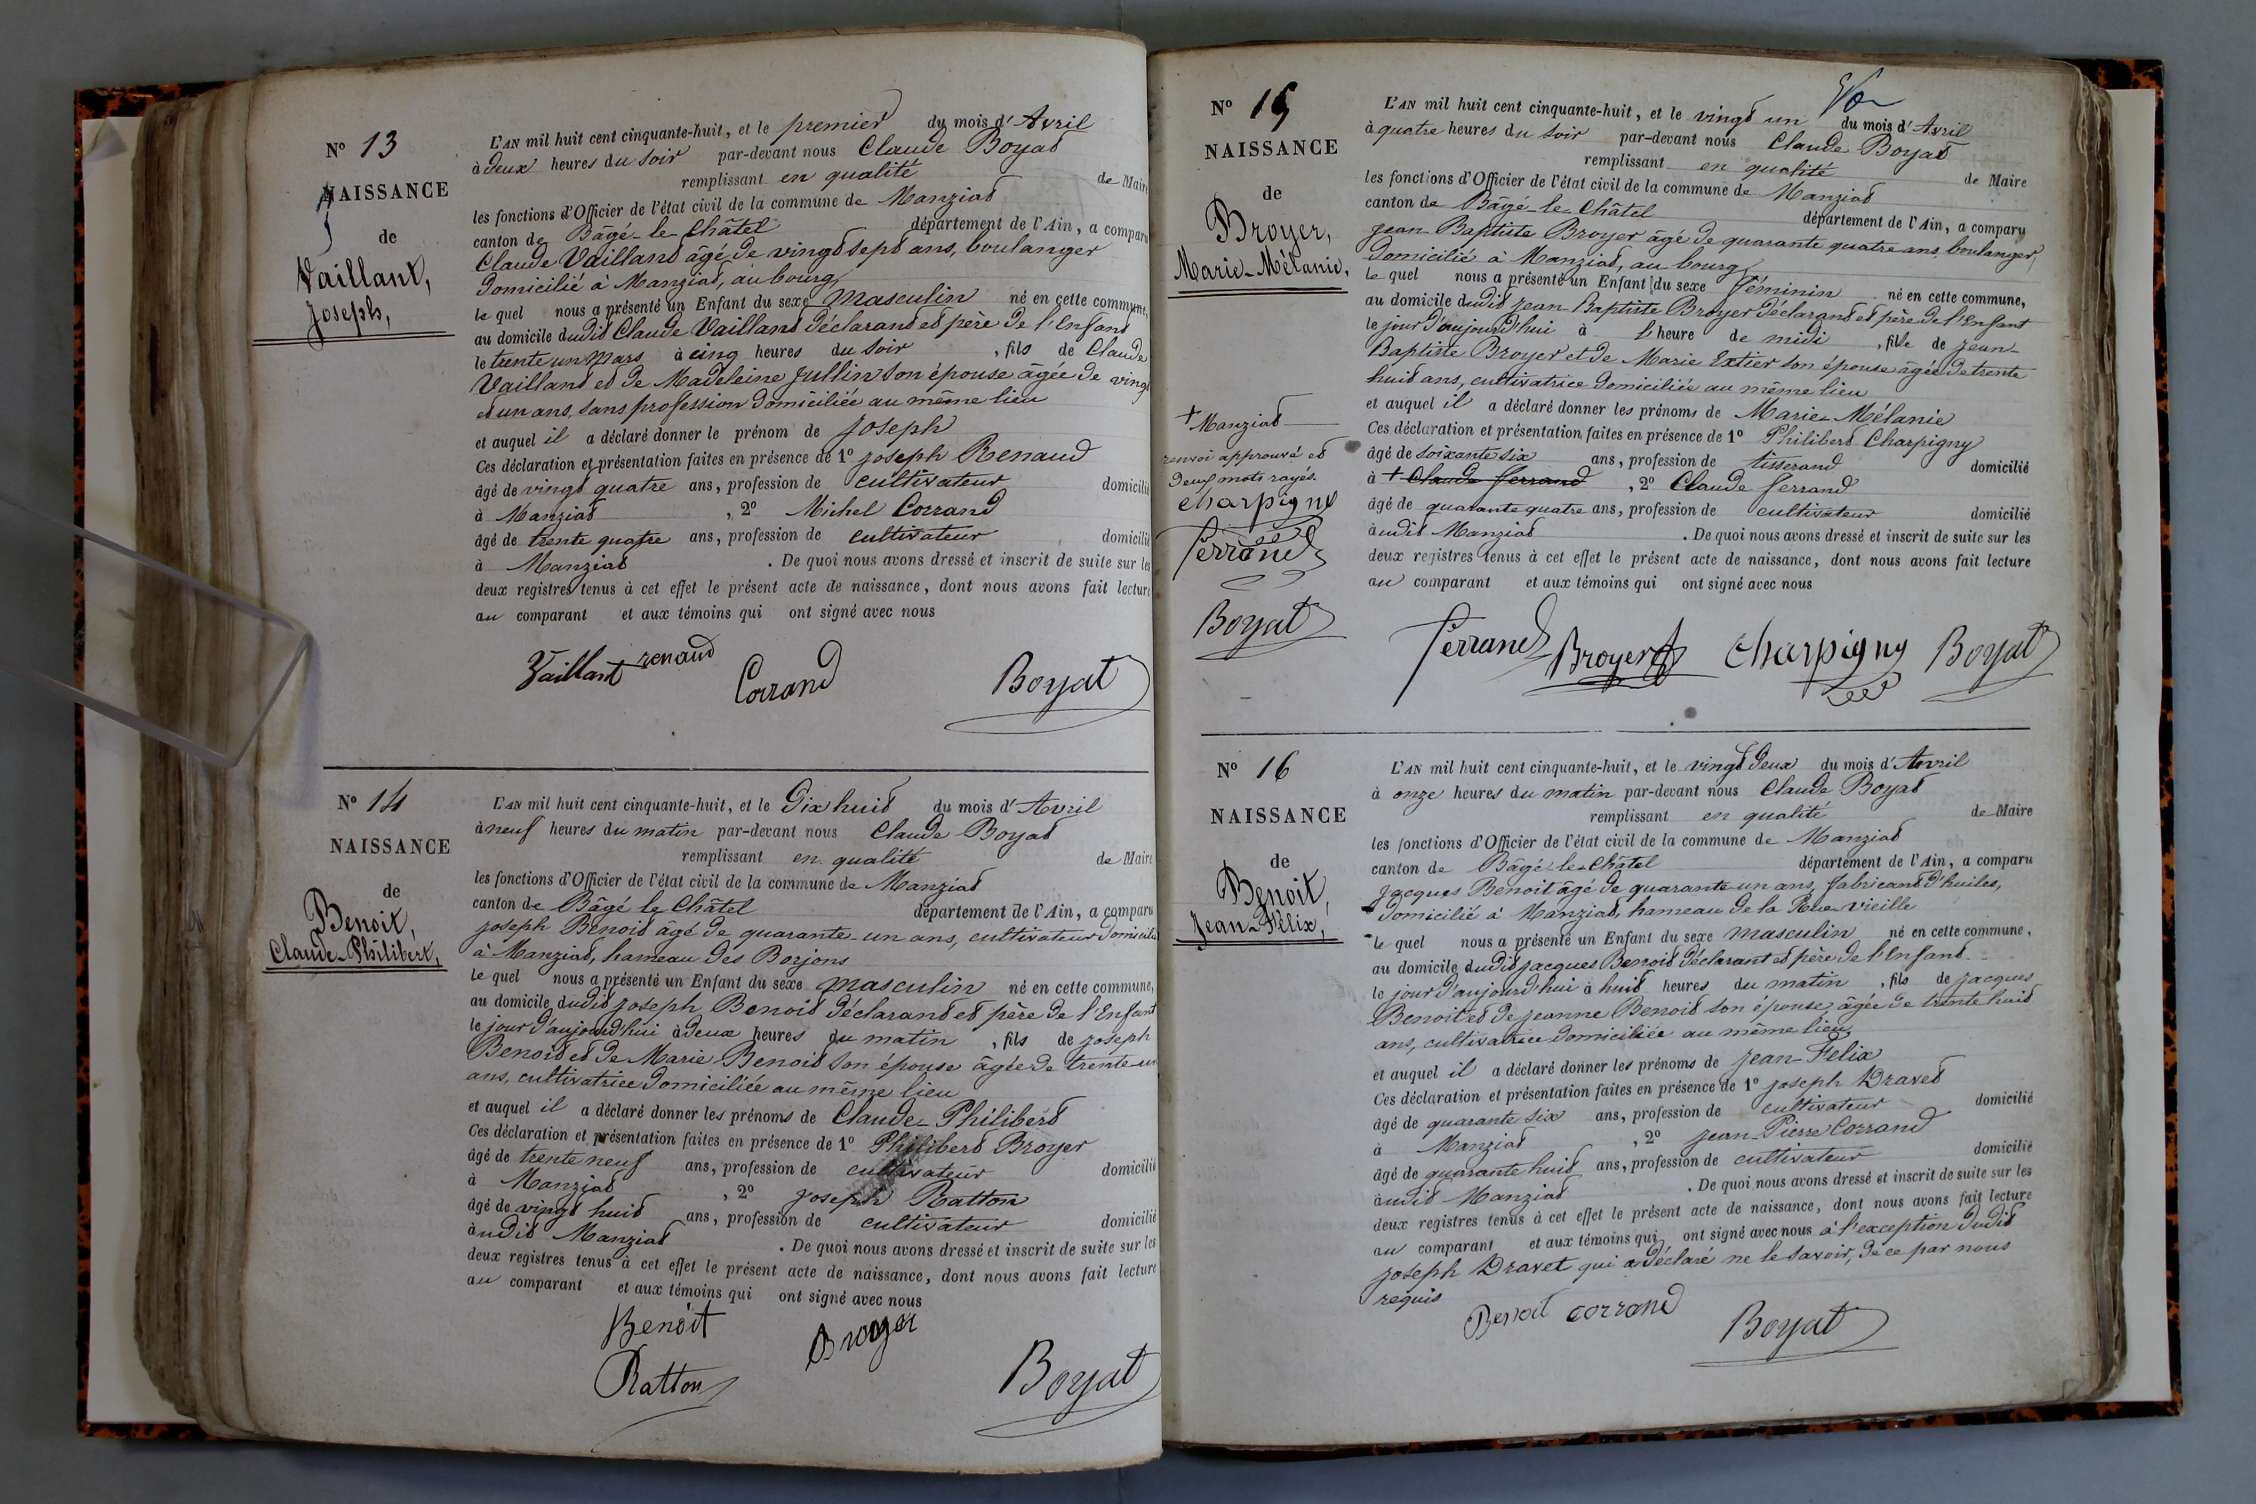 N° 13
NAISSANCE
de
Vaillant,
Joseph,
L'AN mil huit cent cinquante-huit, et le premier du mois d'Avril
à deux heures du soir par-devant nous Claude Boyat
remplissant en qualité de Maire
les fonctions d'Officier de l'état civil de la commune de Manziat
canton de Bâgé-le-Châtel département de l'Ain, a comparu
Claude Vaillant âgé de vingt sept ans, boulanger
domicilié à Manziat, au bourg
le quel nous a présenté un Enfant du sexe masculin né en cette commune,
au domicile dudit Claude Vaillant déclarant et père de l'Enfant
le trente un Mars à cinq heures du soir, fils de Claude
Vaillant et de Madeleine Jullin son épouse âgée de vingt
et un ans, sans profession domiciliée au même lieu
et auquel il a déclaré donner le prénom de Joseph
Ces déclaration et présentation faites en présence de 1° Joseph Renaud
âgé de vingt quatre ans, profession de cultivateur domicilié
à Manziat, 2° Michel Corrand
âgé de trente quatre ans, profession de cultivateur domicilié
à Manziat. De quoi nous avons dressé et inscrit de suite sur les
deux registres tenus à cet effet le présent acte de naissance, dont nous avons fait lecture
au comparant et aux témoins qui ont signé avec nous
Vaillant renaud Corrand Boyat
N° 14
NAISSANCE
de
Benoit,
Claude-Philibert,
L'AN mil huit cent cinquante-huit, et le dix huit du mois d'Avril
à neuf heures du matin par-devant nous Claude Boyat
remplissant en qualité de Maire
les fonctions d'Officier de l'état civil de la commune de Manziat
canton de Bâgé le Châtel département de l'Ain, a comparu
Joseph Benoit âgé de quarante-un ans, cultivateur domicilié
à Manziat, hameau des Borjons
le quel nous a présenté un Enfant du sexe masculin né en cette commune,
au domicile dudit Joseph Benoit déclarant et père de l'Enfant
le jour d'aujourd'hui à deux heures du matin, fils de Joseph
Benoit et de Marie Benoit son épouse âgée de trente-un
ans, cultivatrice domiciliée au même lieu
et auquel il a déclaré donner les prénoms de Claude-Philibert
Ces déclaration et présentation faites en présence de 1° Philibert Broyer
âgé de trente neuf ans, profession de cultivateur domicilié
à Manziat, 2° Joseph Ratton
âgé de vingt huit ans, profession de cultivateur domicilié
à udit Manziat. De quoi nous avons dressé et inscrit de suite sur les
deux registres tenus à cet effet le présent acte de naissance, dont nous avons fait lecture
au comparant et aux témoins qui ont signé avec nous
Benoit Broyer
Ratton Boyat
N° 15
NAISSANCE
de
Broyer,
Marie-Mélanie,
+ Manziat
renvoi approuvé et
deux mots rayés.
charpigny
ferrand
Boyat
L'AN mil huit cent cinquante-huit, et le vingt un du mois d'Avril
à quatre heures du soir par-devant nous Claude Boyat
remplissant en qualité de Maire
les fonctions d'Officier de l'état civil de la commune de Manziat
canton de Bâgé-le-Châtel département de l'Ain, a comparu
Jean-Baptiste Broyer âgé de quarante quatre ans, boulanger,
domicilié à Manziat, au bourg
le quel nous a présenté un Enfant du sexe féminin né en cette commune,
au domicile dudit Jean Baptiste Broyer déclarant et père de l'Enfant
le jour d'aujourd'hui à l'heure de midi, fille de Jean-
Baptiste Broyer et de Marie Extier son épouse âgée de trente
huit ans, cultivatrice domiciliée au même lieu
et auquel il a déclaré donner les prénoms de Marie-Mélanie
Ces déclaration et présentation faites en présence de 1° Philibert Charpigny
âgé de soixante six ans, profession de tisserand domicilié
à + Claude ferrand, 2° Claude ferrand
âgé de quarante quatre ans, profession de cultivateur domicilié
à udit Manziat. De quoi nous avons dressé et inscrit de suite sur les
deux registres tenus à cet effet le présent acte de naissance, dont nous avons fait lecture
au comparant et aux témoins qui ont signé avec nous
ferrand Broyer charpigny Boyat
N° 16
NAISSANCE
de
Benoit,
Jean-Félix,
L'AN mil huit cent cinquante-huit, et le vingt deux du mois d'Avril
à onze heures du matin par-devant nous Claude Boyat
remplissant en qualité de Maire
les fonctions d'Officier de l'état civil de la commune de Manziat
canton de Bâgé-le-Châtel département de l'Ain, a comparu
Jacques Benoit âgé de quarante-un ans, fabricant d'huiles,
domicilié à Manziat, hameau de la Rue-vieille
le quel nous a présenté un Enfant du sexe masculin né en cette commune,
au domicile dudit Jacques Benoit déclarant et père de l'Enfant
le jour d'aujourd'hui à huit heures du matin, fils de Jacques
Benoit et de Jeanne Benoit son épouse, âgée de trente huit
ans, cultivatrice domiciliée au même lieu
et auquel il a déclaré donner les prénoms de Jean-Felix
Ces déclaration et présentation faites en présence de 1° Joseph Dravet
âgé de quarante six ans, profession de cultivateur domicilié
à Manziat, 2° Jean-Pierre Corrand
âgé de quarante huit ans, profession de cultivateur domicilié
à udit Manziat. De quoi nous avons dressé et inscrit de suite sur les
deux registres tenus à cet effet le présent acte de naissance, dont nous avons fait lecture
au comparant et aux témoins qui ont signé avec nous à l'exception dudit
Joseph Dravet qui a déclaré ne le savoir, de ce par nous
requis
Benoit corrand Boyat